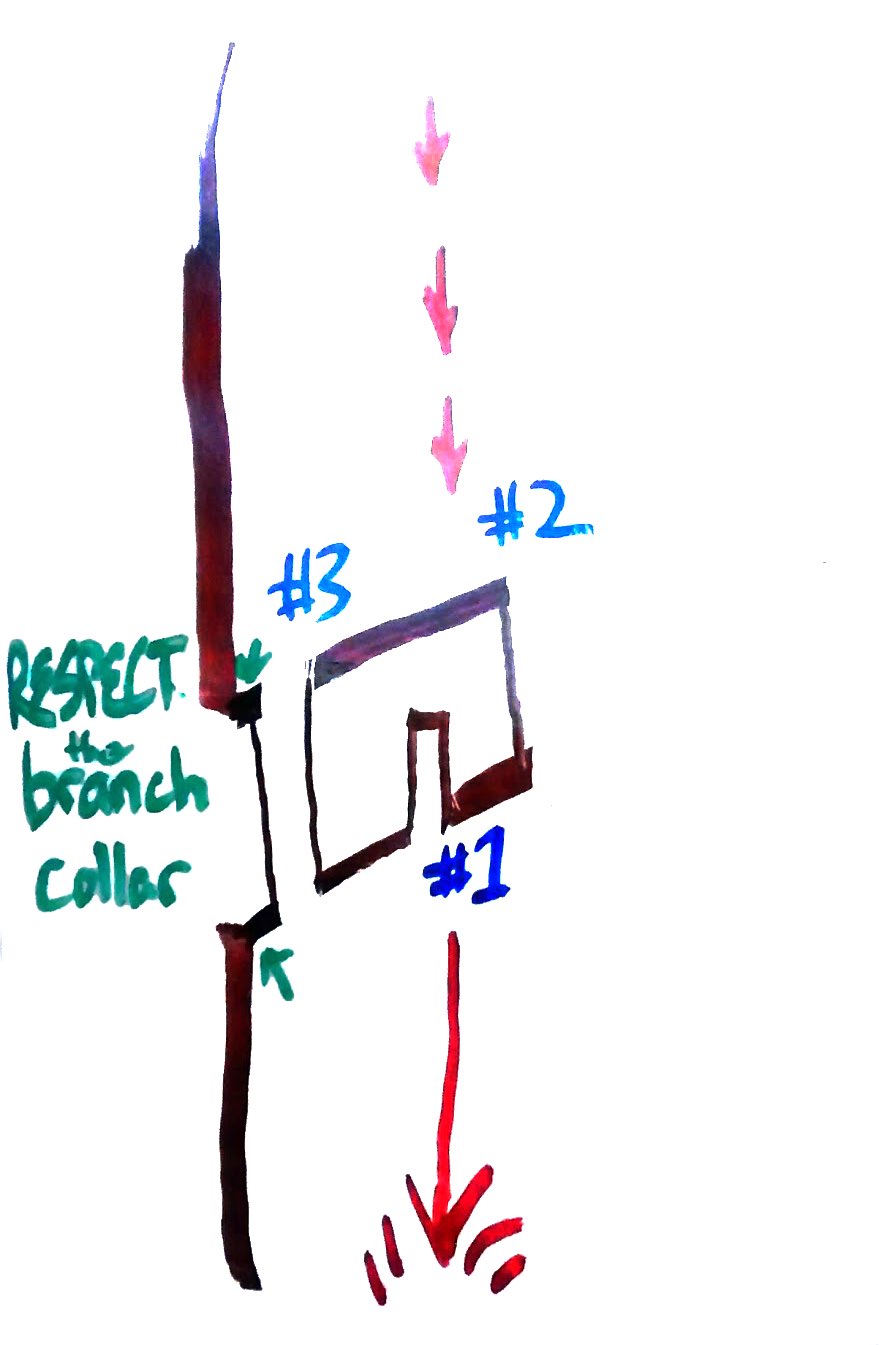 #2
#3
RESPECT
the
branch
collar
#1